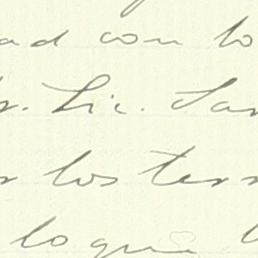 ad con lo
r. Lic. San
r los term
lo que